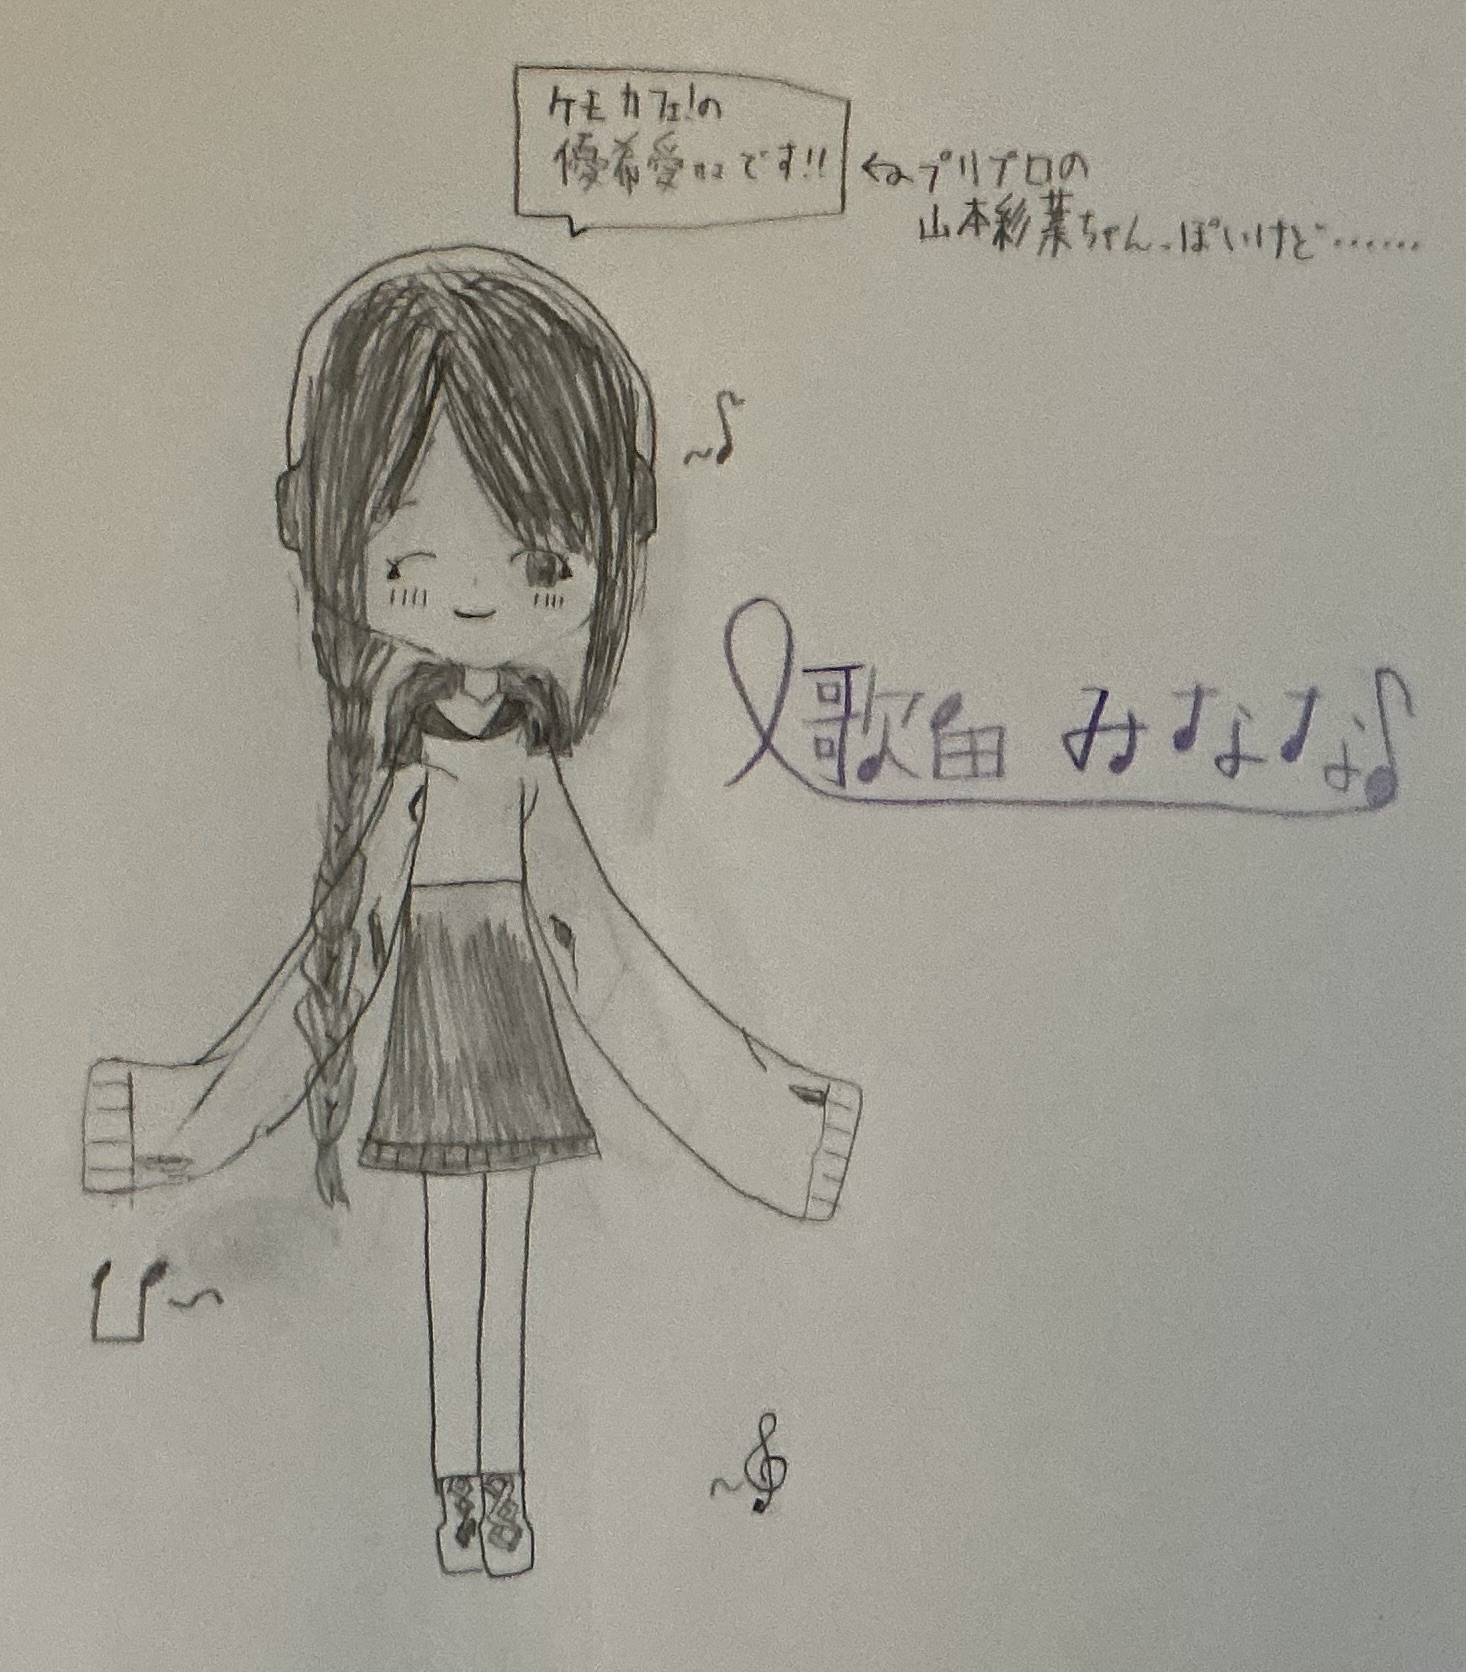 ケモカフェ!の
優希愛ココです!!
←プリプロの
山本彩葉ちゃんっぽいけど……
歌留 みななな